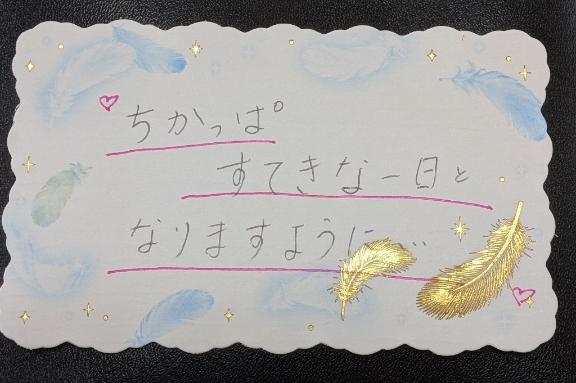 ちかっぱ
すてきな一日と
なりますように…